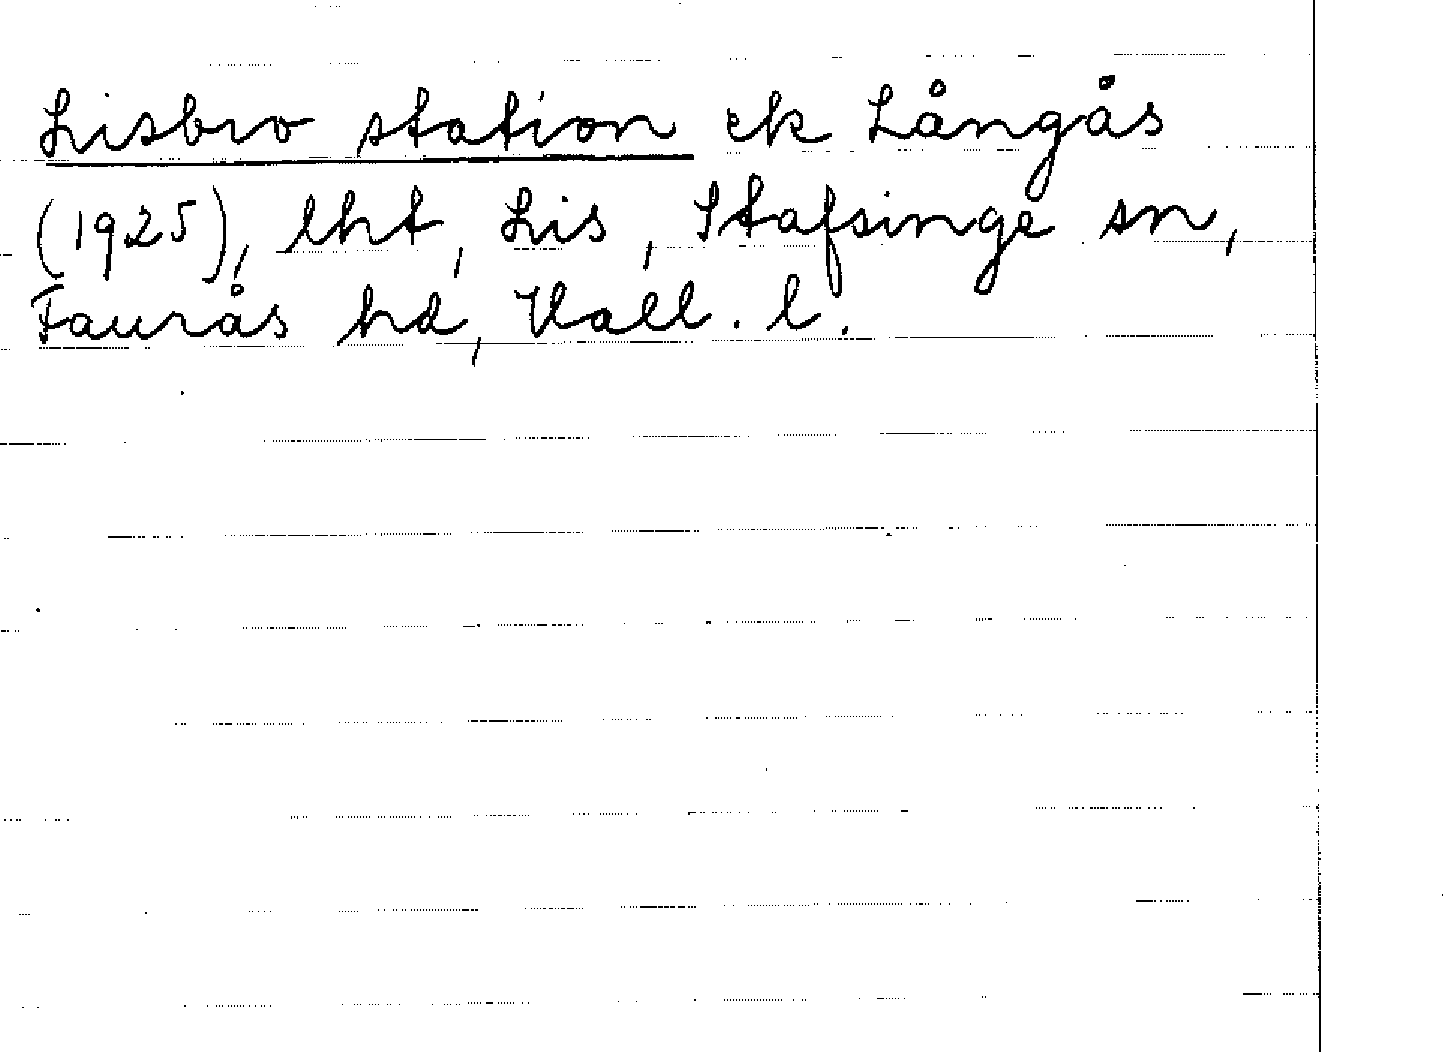 Lisbro station ek Långås
(1925), lht, Lis, Stafsinge sn,
Faurås hd, Hall. l.